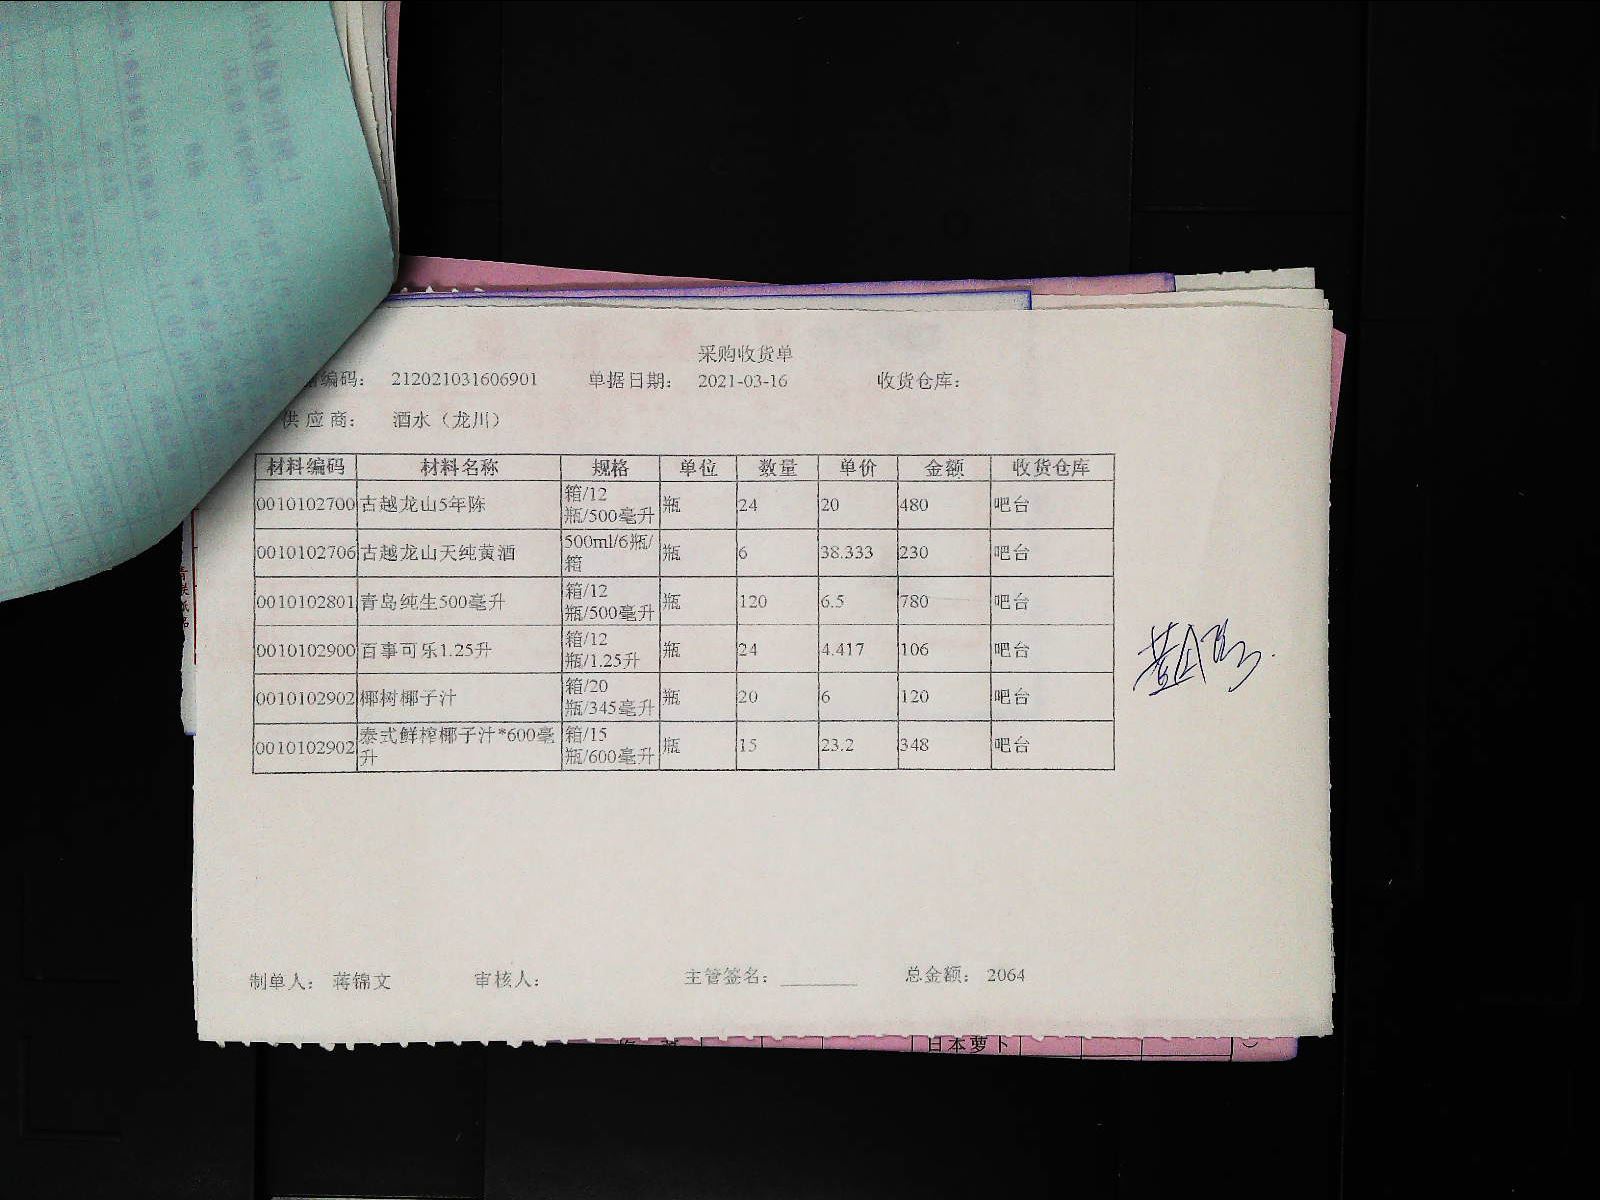 采购收货单
编码： 212021031606901 单据日期： 2021-03-16 收货仓库：
供应商： 酒水（龙川）
材料编码 材料名称 规格 单位 数量 单价 金额 收货仓库
0010102700 古越龙山5年陈 箱/12瓶/500毫升 瓶 24 20 480 吧台
0010102706 古越龙山天纯黄酒 500ml/6瓶/箱 瓶 6 38.333 230 吧台
0010102801 青岛纯生500毫升 箱/12瓶/500毫升 瓶 120 6.5 780 吧台
0010102900 百事可乐1.25升 箱/12瓶/1.25升 瓶 24 4.417 106 吧台
0010102902 椰树椰子汁 箱/20瓶/345毫升 瓶 20 6 120 吧台
0010102902 泰式鲜榨椰子汁*600毫升 箱/15瓶/600毫升 瓶 15 23.2 348 吧台
制单人： 蒋锦文 审核人： 主管签名： ________ 总金额： 2064
日本萝卜